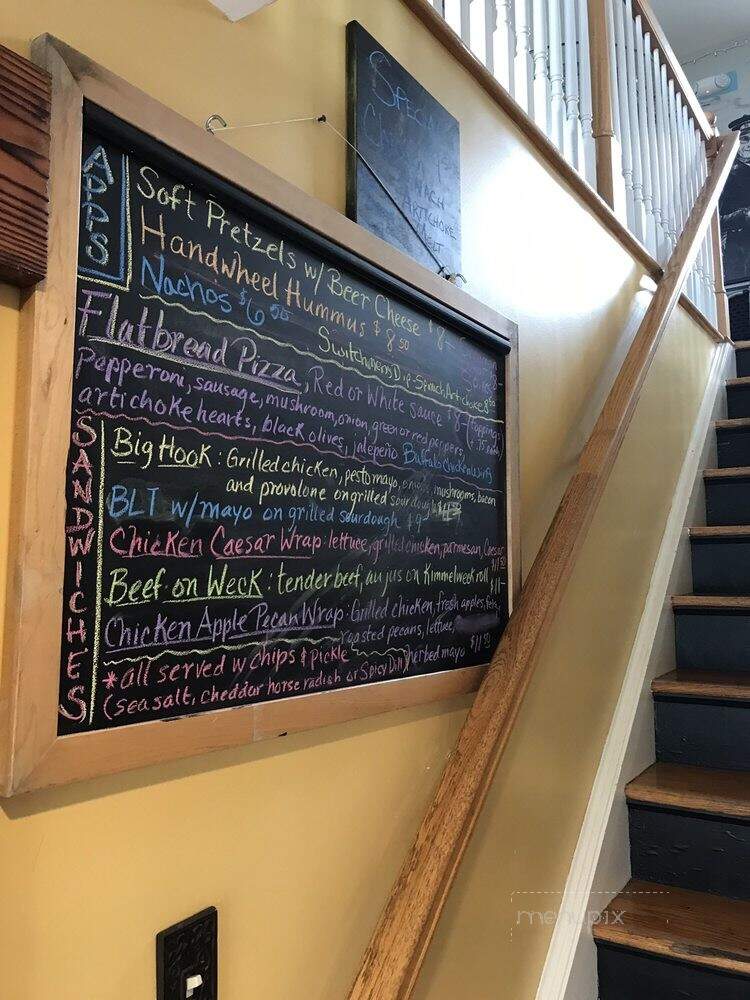 SPECIAL
ARTICHOKE
MELT
APPS
Soft Pretzels w/ Beer Cheese $8-
Handwheel Hummus $8.50
Nachos $6.00
Switchmens Dip-Spinach Artichoke 8.50
Flatbread Pizza, Red or White sauce $8-(toppings
Pepperoni, sausage, mushroom, onion, green or red peppers, .75 each)
artichoke hearts, black olives, jalepeño Buffalo Chicken
SANDWICHES
Big Hook: Grilled chicken, pesto mayo, onion, mushrooms, bacon
and provolone on grilled sourdough
BLT w/mayo on grilled sourdough $9-
Chicken Caesar Wrap: lettuce, grilled chicken, parmesan, Caesar
Beef on Weck: tender beef, au jus on Kimmelweck roll $11-
Chicken Apple Pecan Wrap: Grilled chicken, fresh apples, feta,
roasted pecans, lettuce,
herbed mayo $11.50
*all served w chips & pickle
(sea salt, cheddar horse radish or Spicy Dill)
menupix